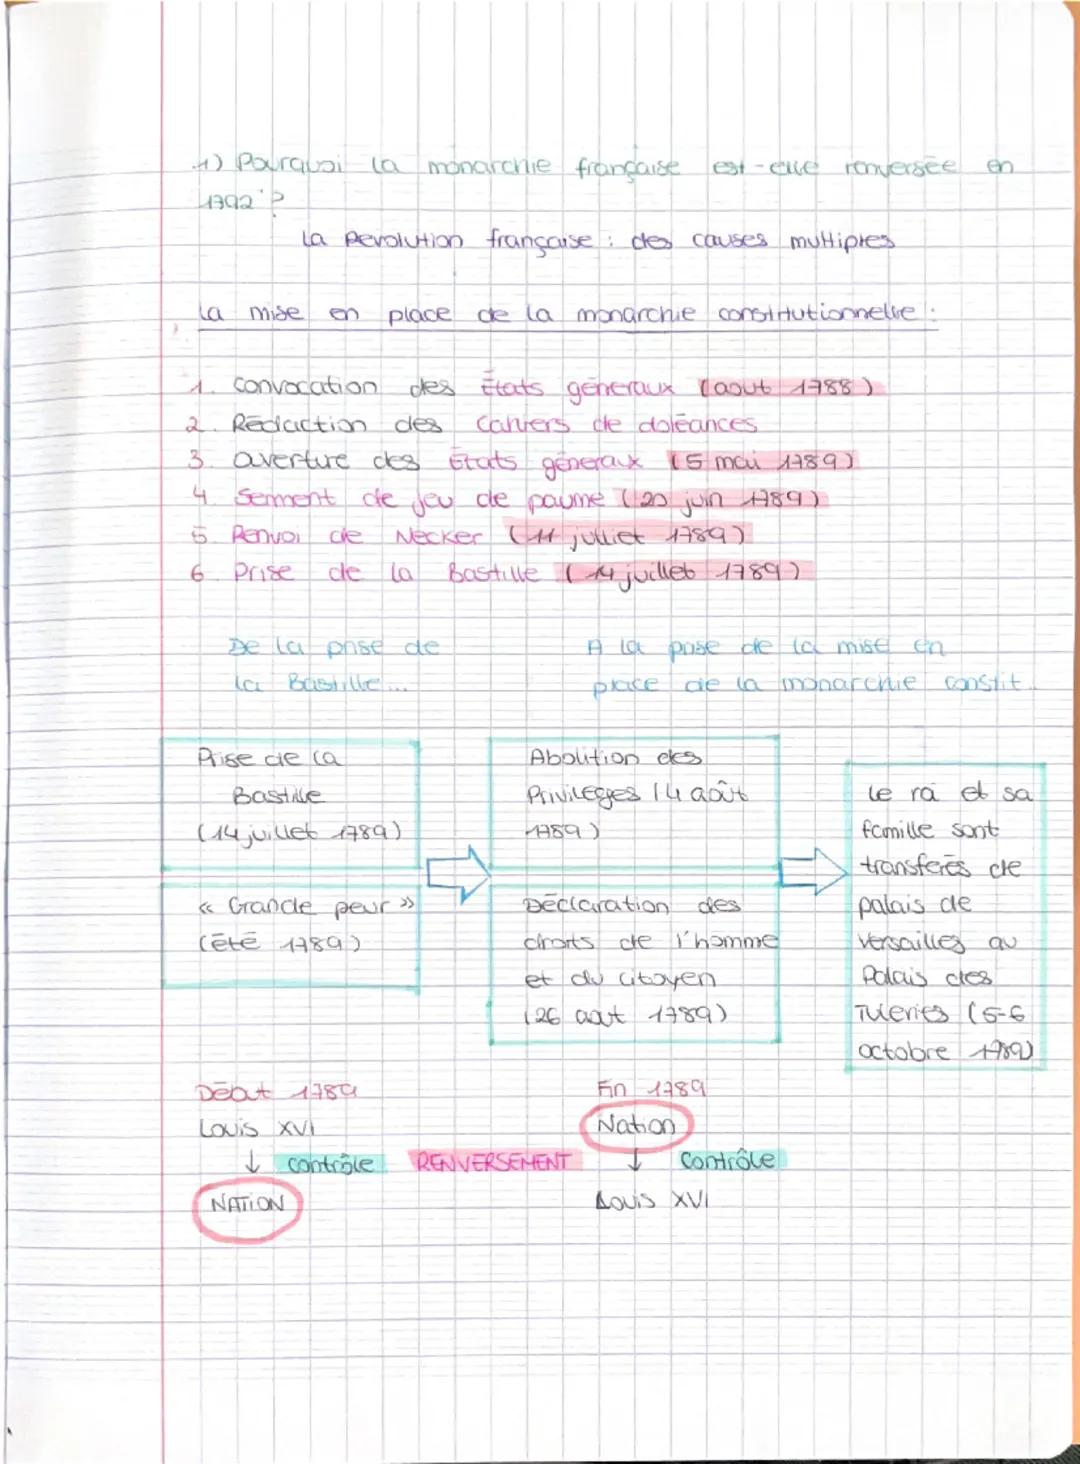 1) Pourquoi la monarchie française est-elle renversée en
1792 ?
La Revolution française : des causes multiples
La mise en place de la monarchie constitutionnelle :
1. Convocation des États généraux (aout 1788)
2. Rédaction des cahiers de doléances
3. Overture des États généraux (5 mai 1789)
4. Serment de jeu de paume (20 juin 1789)
5. Renvoi de Necker (11 julliet 1789)
6. Prise de la Bastille (14 juillet 1789)
De la prise de
la Bastille...
A la prise de la mise en
place de la monarchie constit...
Prise de la
Bastille
(14 juillet 1789)
« Grande peur »
(été 1789)
Abolition des
Privilèges (4 août
1789)
Déclaration des
droits de l'homme
et du citoyen
(26 aout 1789)
Le roi et sa
famille sont
transférés de
palais de
Versailles au
Palais des
Tuleries (5-6
octobre 1789)
Début 1789
Louis XVI
↓ contrôle
NATION
RENVERSEMENT
Fin 1789
Nation
↓ Contrôle
Louis XVI